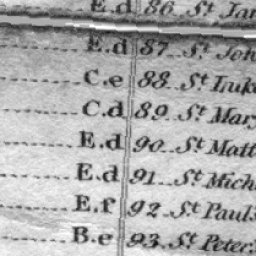 E.d 86 St
E.d 87 St
C.e 88 St Luke
C.d 89 St Mary
E.d 90 St Matt
E.d 91 St Mich
E.f 92 St Paul's
B.e 93 St Peter